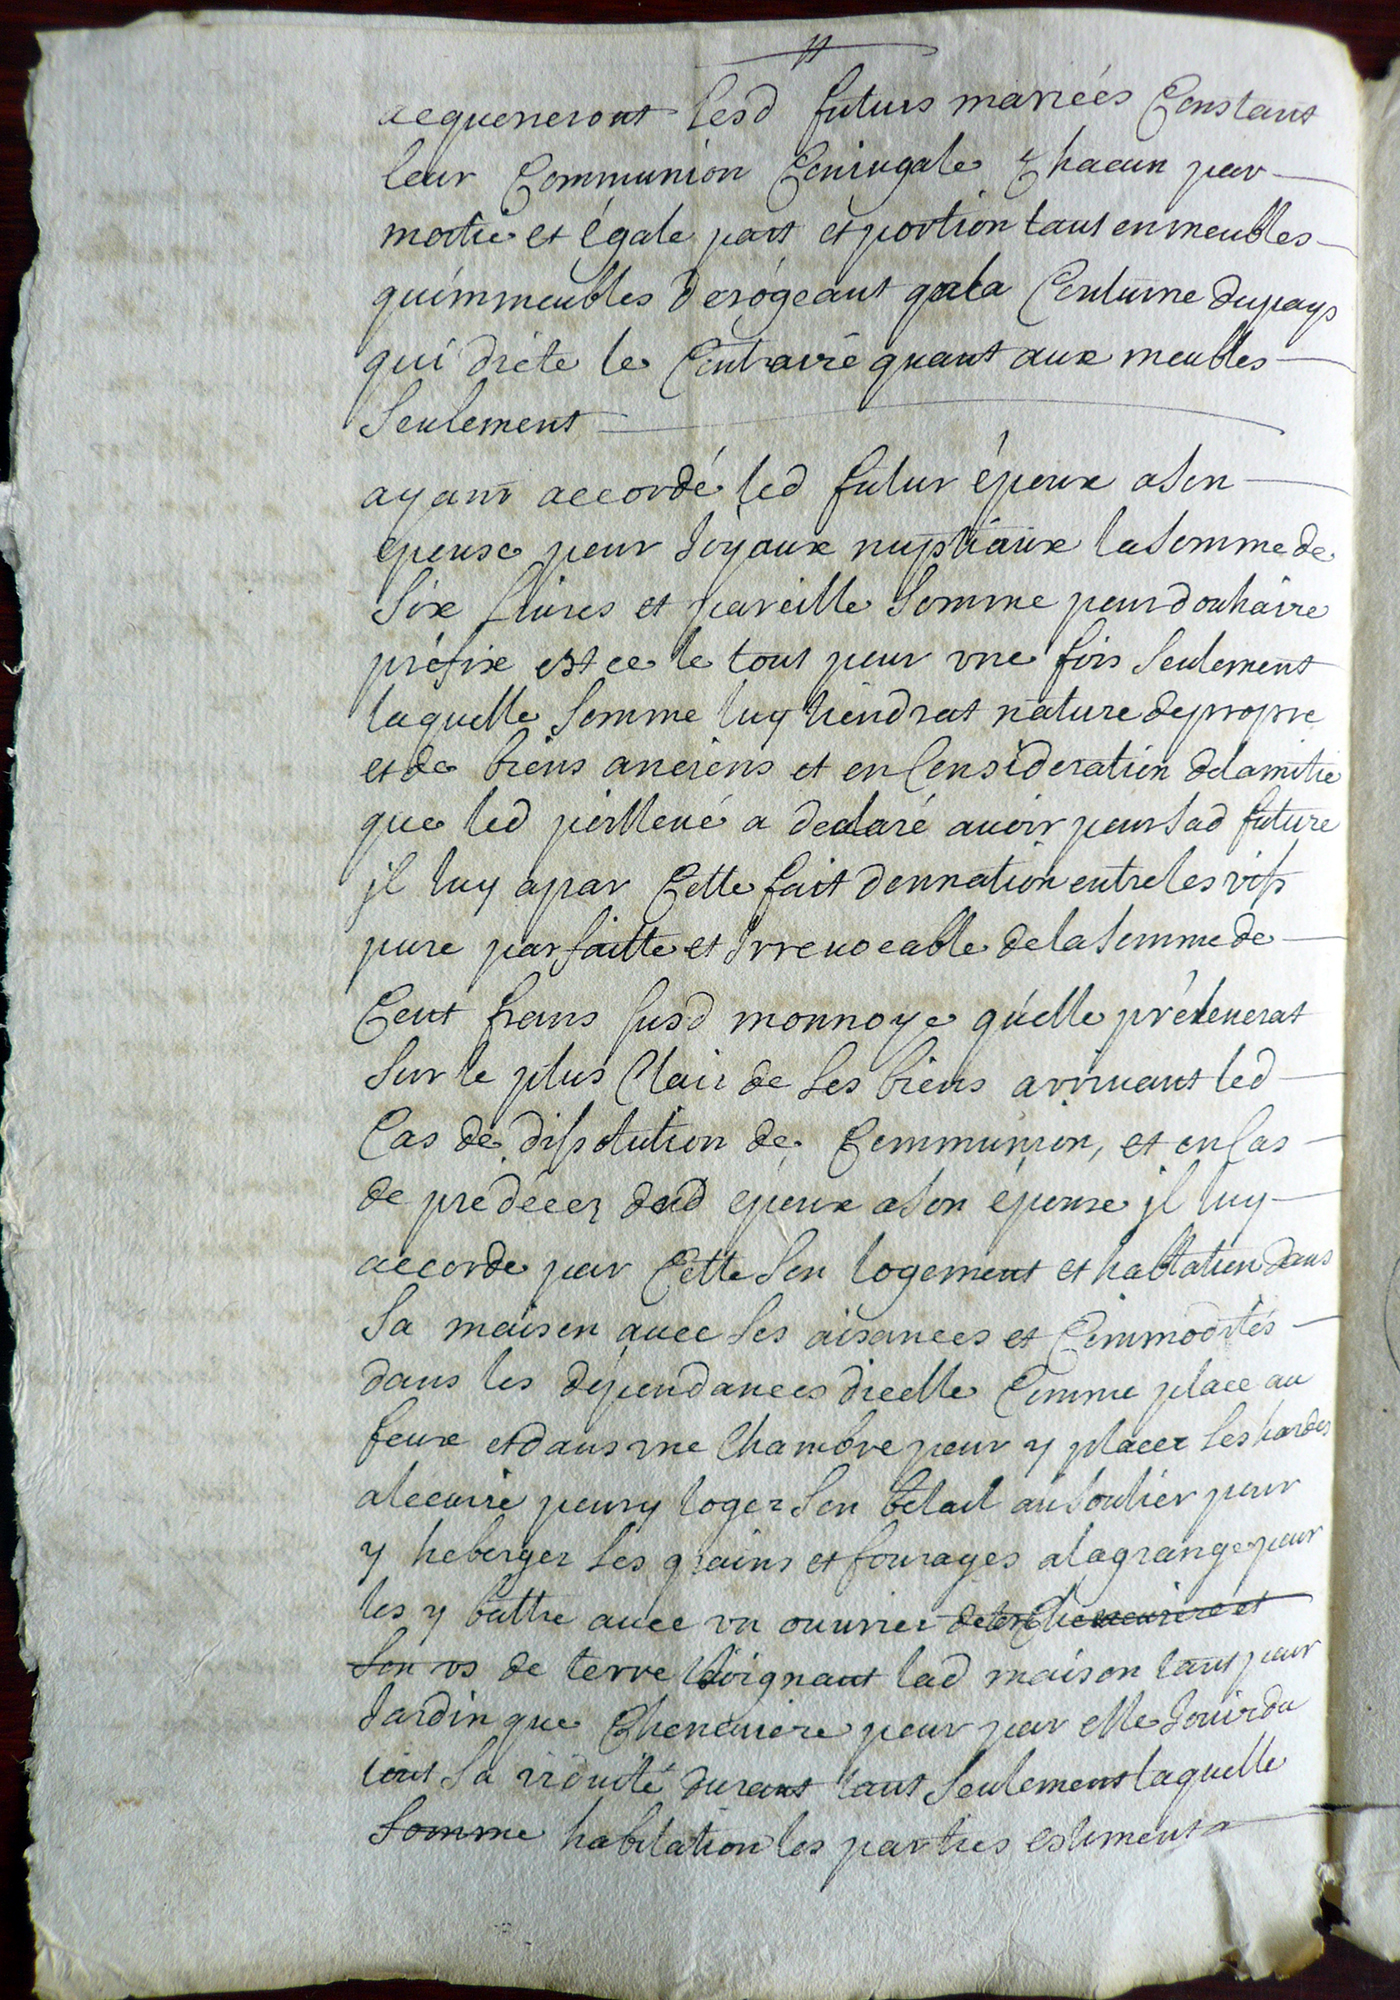 acquereront lesd futurs mariées Constant
leur Communion Coniugale Chacun par
moitie et égale part et portion tant en meubles
qu'immeubles dérogeant a la Coutume du pays
qui dicte le Contraire quant aux meubles
Seulement
ayant accordé led futur époux a Son
épouse pour Joyaux nuptiaux la Somme de
Six Liures et pareille Somme pour douhaire
préfix est ce le tout pour vne fois Seulement
laquelle Somme luy tiendrat nature de propre
et de biens anciens et en Consideration delamitie
que led a declaré auoir pour Sad future
jl luy a par Cette fait donnation entre les vifs
pure parfaitte et Irreuocable de la Somme de
Cent frans susd monnoye quelle préleuerat
Sur le plus Clair de Ses biens arriuant led
Cas de dissolution de Communion, et en Cas
de prédécez dud epoux a Son épouse jl luy
accorde par Cette Son logement et habitation dans
Sa maison auec Ses aisances et Commodités
dans les dépendances dicelle Comme place au
feux et dans vne Chambre pour y placer Ses hardes
alecurie pour y loger Son bétail au Soulier pour
y heberger Ses grains et fourages a la grange pour
les y battre auec vn ouurier
de terre Joignant lad maison tant pour
Jardin que Cheneuiere pour par elle Jouir du
tout Sa viduité durant tant Seulement laquelle
Somme habitation les parties estiment a